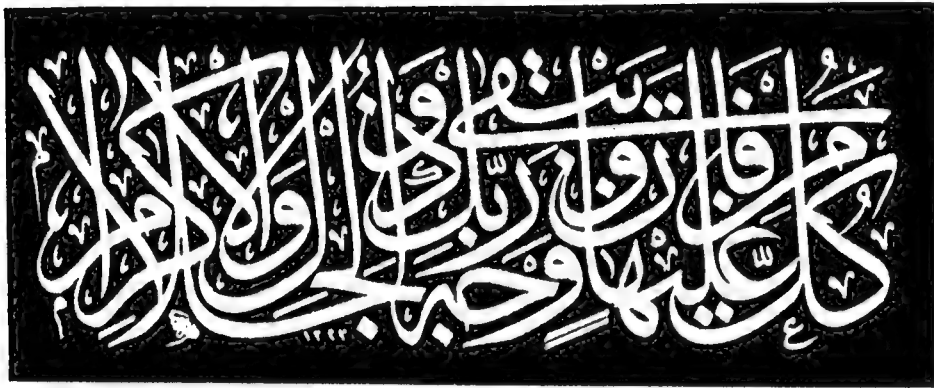 كُلُّ مَنْ عَلَيْهَا فَانٍ وَيَبْقَى وَجْهُ رَبِّكَ ذُو الْجَلَالِ وَالْإِكْرَامِ